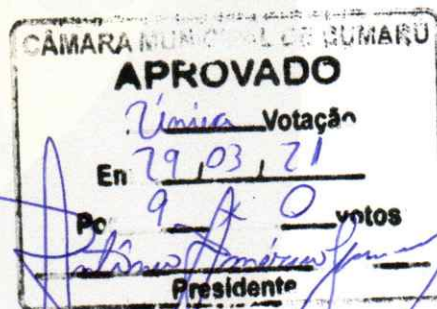 CÂMARA MUNICIPAL DE CUMARU
APROVADO
Única Votação
Em 29, 03, 21
Por 9 A 0 votos
Antônio Américo
Presidente